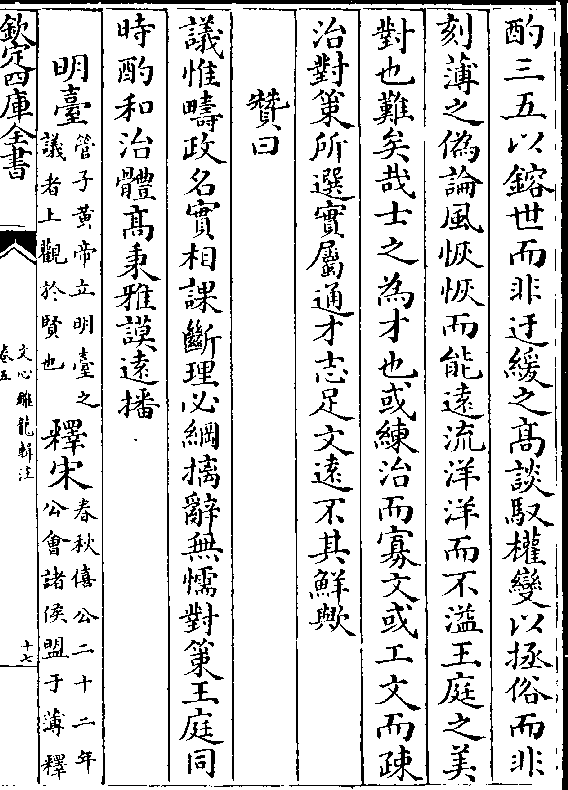 酌三五以鎔世而非迂緩之髙談馭權變以拯俗而非
刻薄之偽論風恢恢而能遠流洋洋而不溢王庭之美
對也難矣哉士之為才也或練治而寡文或工文而疎
治對策所選實屬通才志足文遠不其鮮歟
贊曰
議惟疇政名實相課斷理必綱摛辭無懦對策王庭同
時酌和治體髙秉雅謨逺播
明臺管子黄帝立明臺之議者上觀於賢也釋宋春秋僖公二十二年公會諸侯盟于薄釋
欽定四庫全書
文心雕龍輯注
卷五
十七